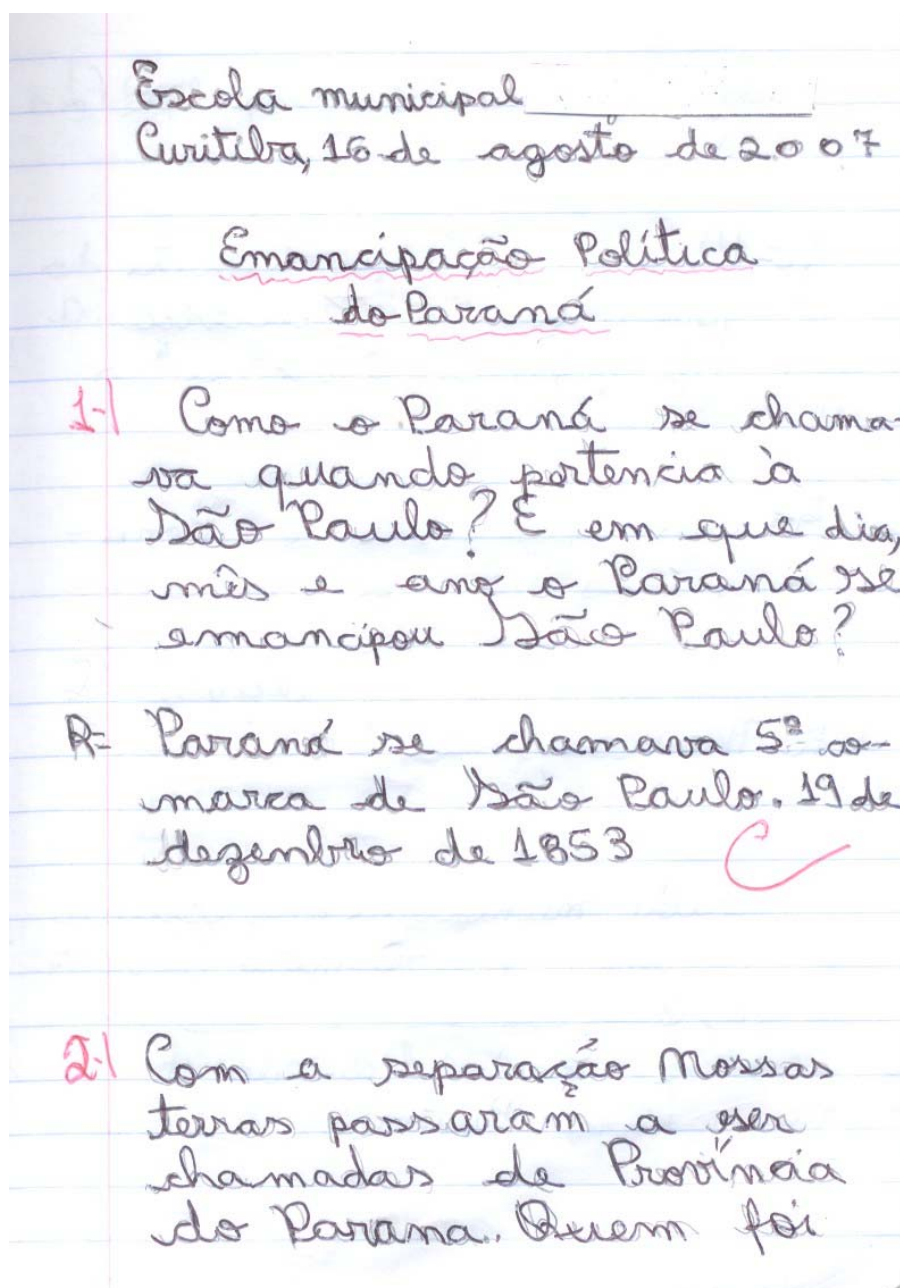 Escola municipal
Curitiba, 16 de agosto de 2007
Emancipação Política
do Paraná
1-| Como o Paraná se chama-
va quando pertencia à
São Paulo? E em que dia,
mês e ano o Paraná se
emancipou São Paulo?
R= Paraná se chamava 5ª co-
marca de São Paulo. 19 de
dezembro de 1853 C
2-| Com a separação Nossas
terras passaram a ser
chamadas de Província
do Parana. Quem foi